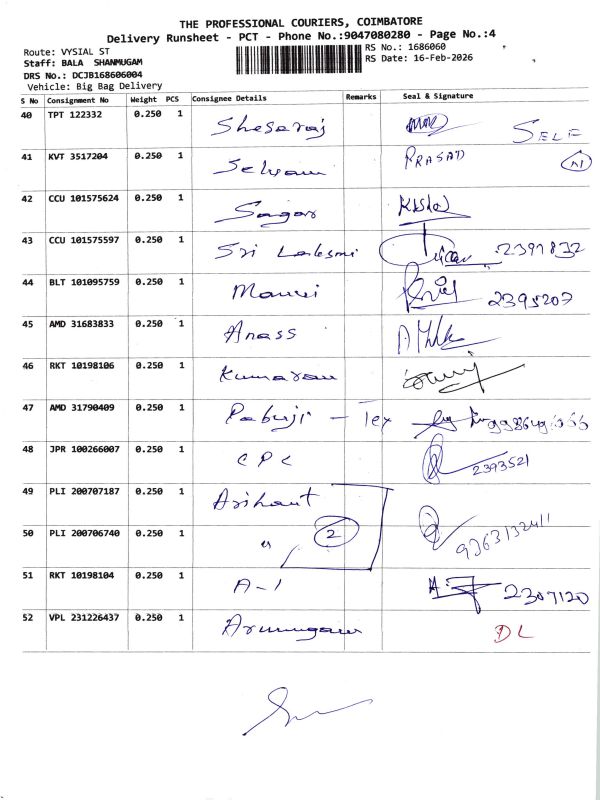 THE PROFESSIONAL COURIERS, COIMBATORE
Delivery Runsheet - PCT - Phone No.:9047080280 - Page No.:4
Route: VYSIAL ST
RS No.: 1686060
Staff: BALA SHANMUGAM
RS Date: 16-Feb-2026
DRS No.: DCJB168606004
Vehicle: Big Bag Delivery
S No Consignment No Weight PCS Consignee Details Remarks Seal & Signature
40 TPT 122332 0.250 1 Shesaraj SELF
41 KVT 3517204 0.250 1 Selvam PRASAD
42 CCU 101575624 0.250 1 Sagar
43 CCU 101575597 0.250 1 Sri Lakesmi 2397832
44 BLT 101095759 0.250 1 2395207
45 AMD 31683833 0.250 1 Anass
46 RKT 10198106 0.250 1 Kumaran
47 AMD 31790409 0.250 1 Pabuji - Tex
48 JPR 100266007 0.250 1 CPC 2393521
49 PLI 200707187 0.250 1 Arihant
50 PLI 200706740 0.250 1 " 2
51 RKT 10198104 0.250 1 A-1 2307120
52 VPL 231226437 0.250 1 Arumugam DL